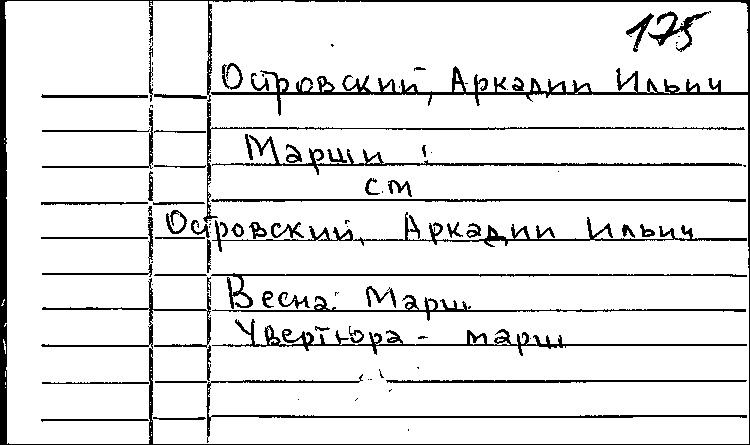 175
Островский, Аркадии Ильич
Марши !
см
Островский, Аркадии Ильич
Весна: Марш
Увертюра - марш